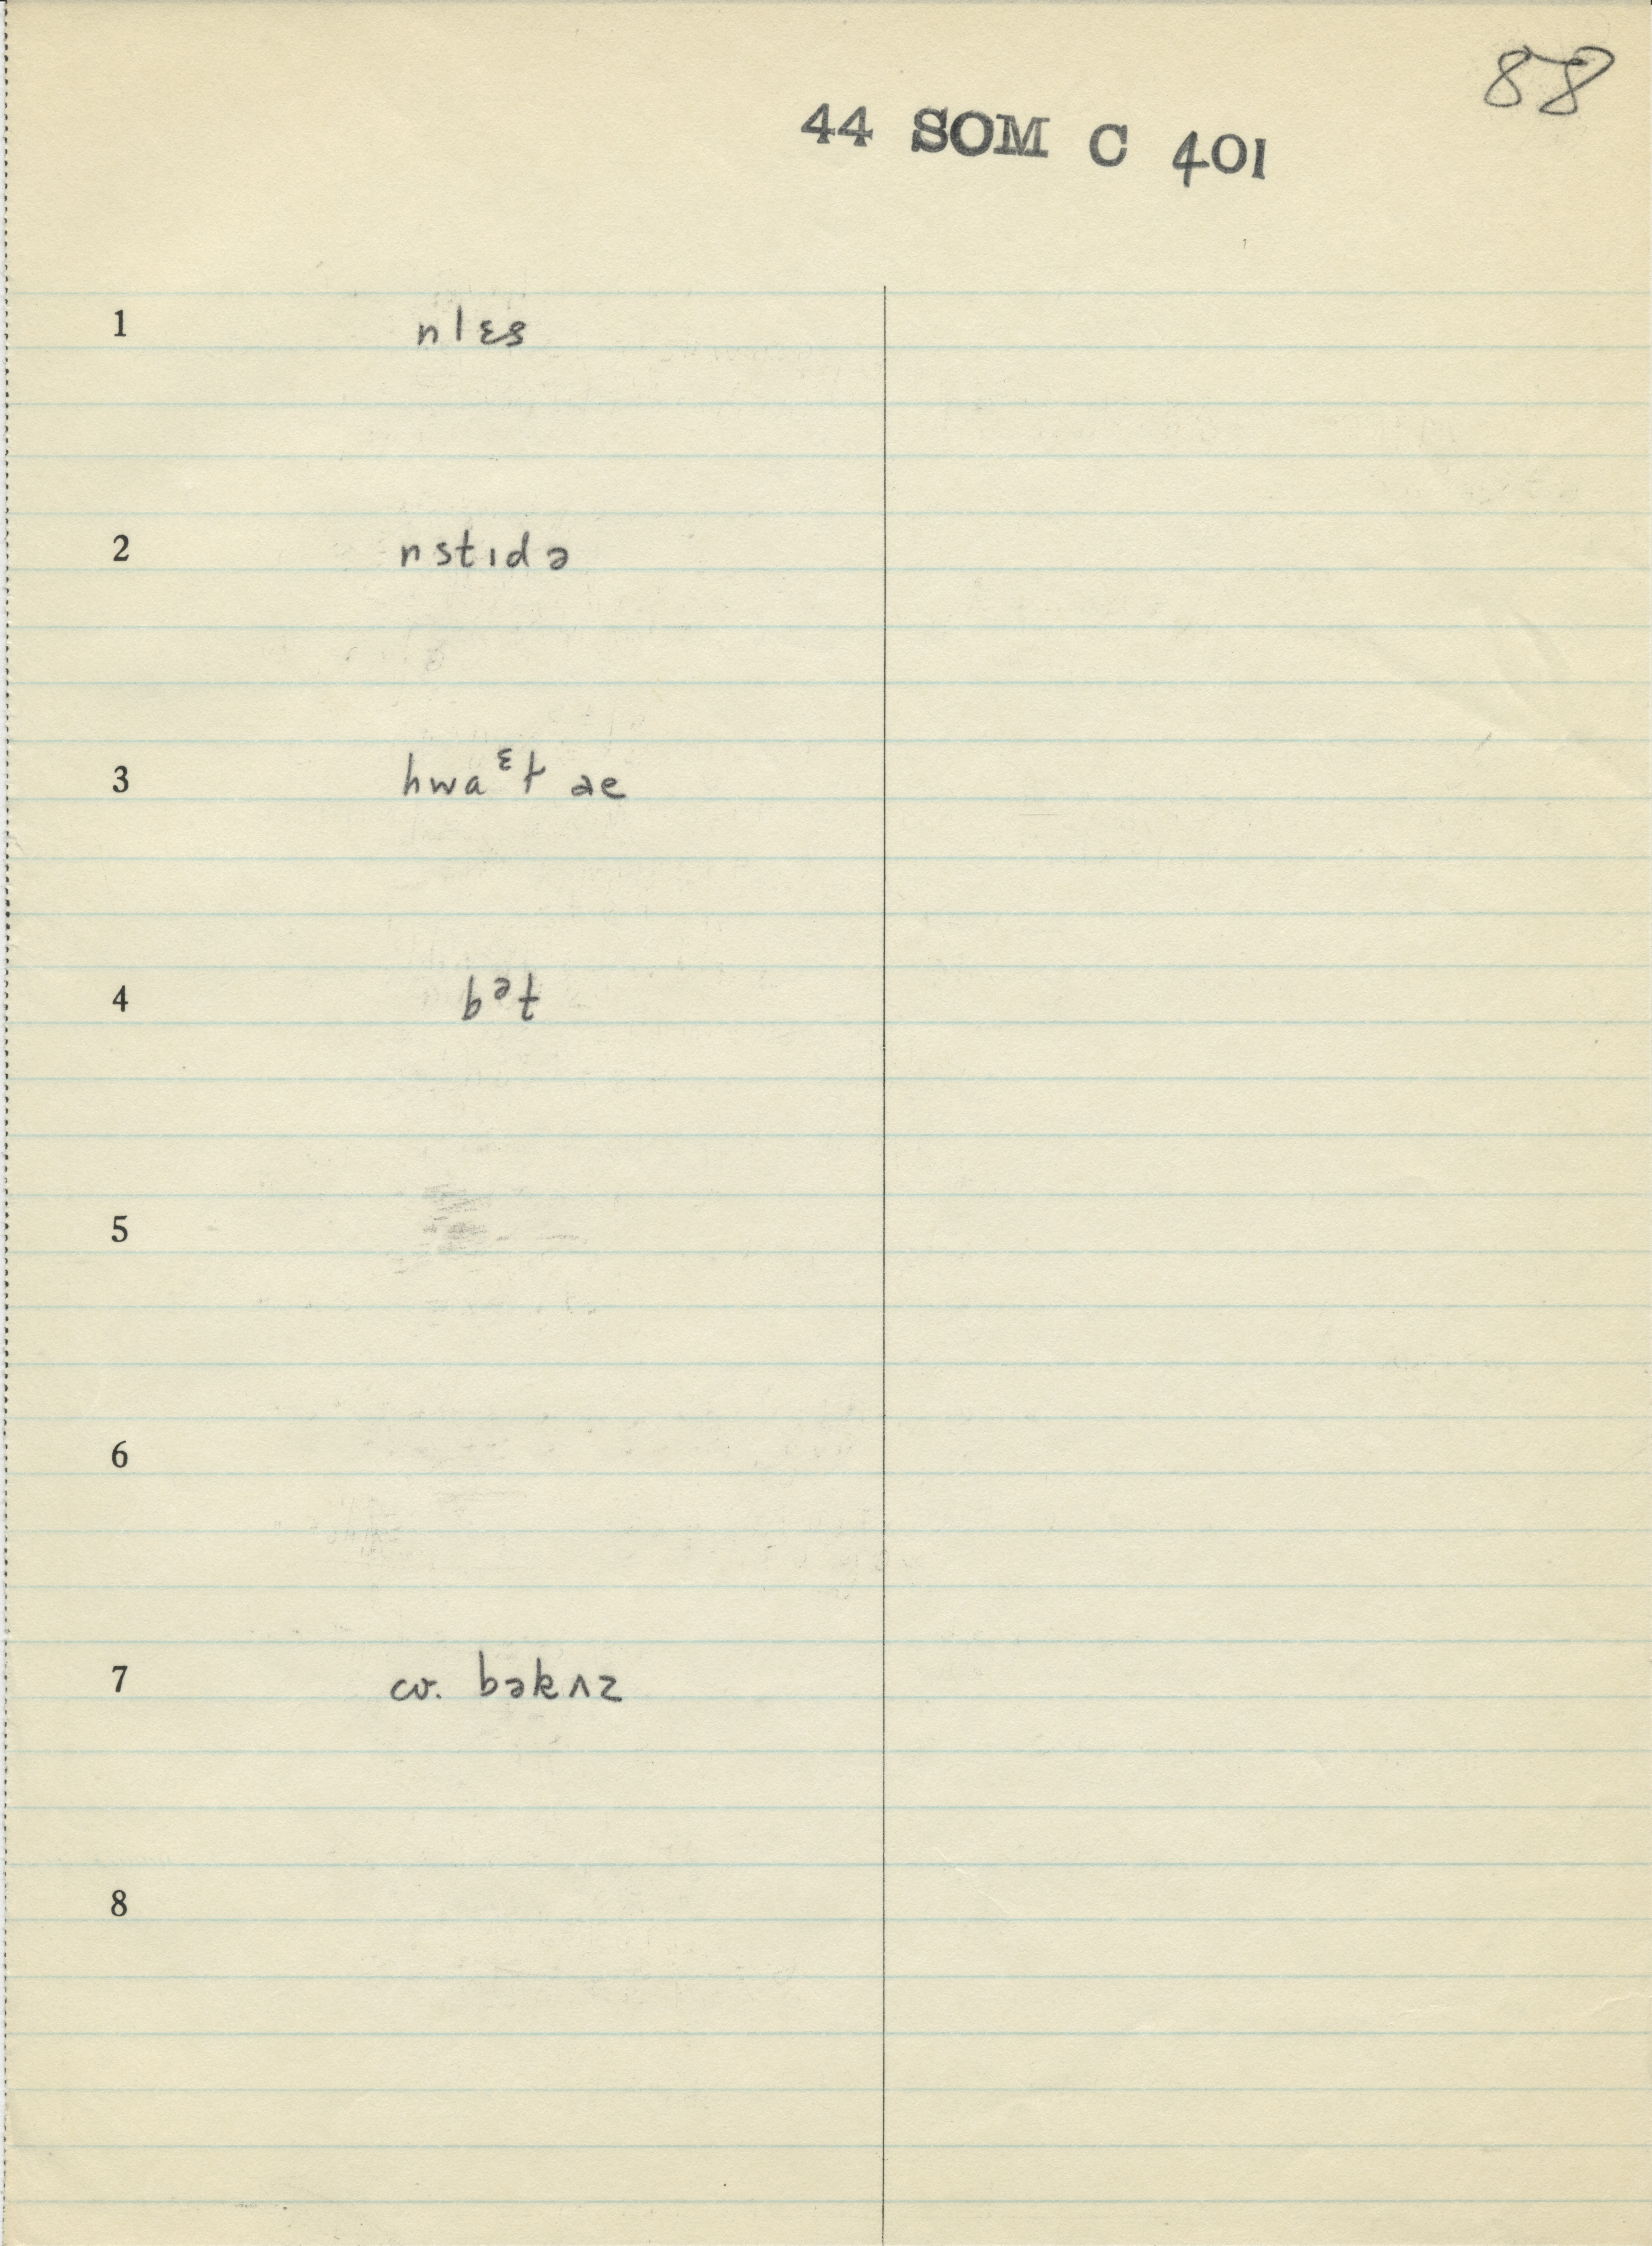 88
44 SOM C 401
1 nlɛs
2 nstɪdə
3 hwaᵋt
4 bᵊt
5
6
7 cv. bəkʌz
8